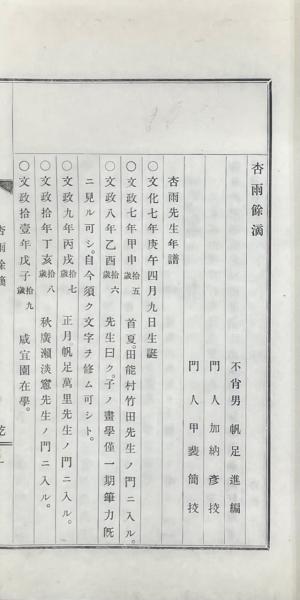 杏雨餘滴
不肖男 帆足進編
門人 加納彥挍
門人 甲斐簡挍
杏雨先生年譜
○文化七年庚午四月九日生誕
○文政七年甲申拾五歲 首夏。田能村竹田先生ノ門ニ入ル。
○文政八年乙酉拾六歲 先生曰ク。子ノ畫學僅一期筆力旣
ニ見ル可シ。自今須ク文字ヲ修ム可シト。
○文政九年丙戌拾七歲 正月。帆足萬里先生ノ門ニ入ル。
○文政拾年丁亥拾八歲 秋廣瀨淡窻先生ノ門ニ入ル。
○文政拾壹年戊子拾九歲 咸宜園在學。
杏雨餘滴 乾 一